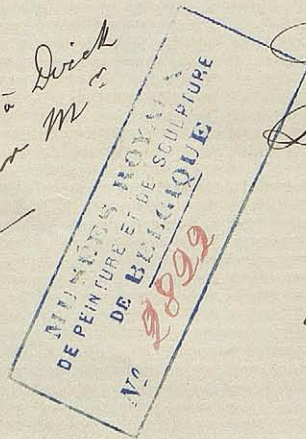 à Dirick
M
MUSÉES ROYAUX
DE PEINTURE ET DE SCULPTURE
DE BELGIQUE
No 2822